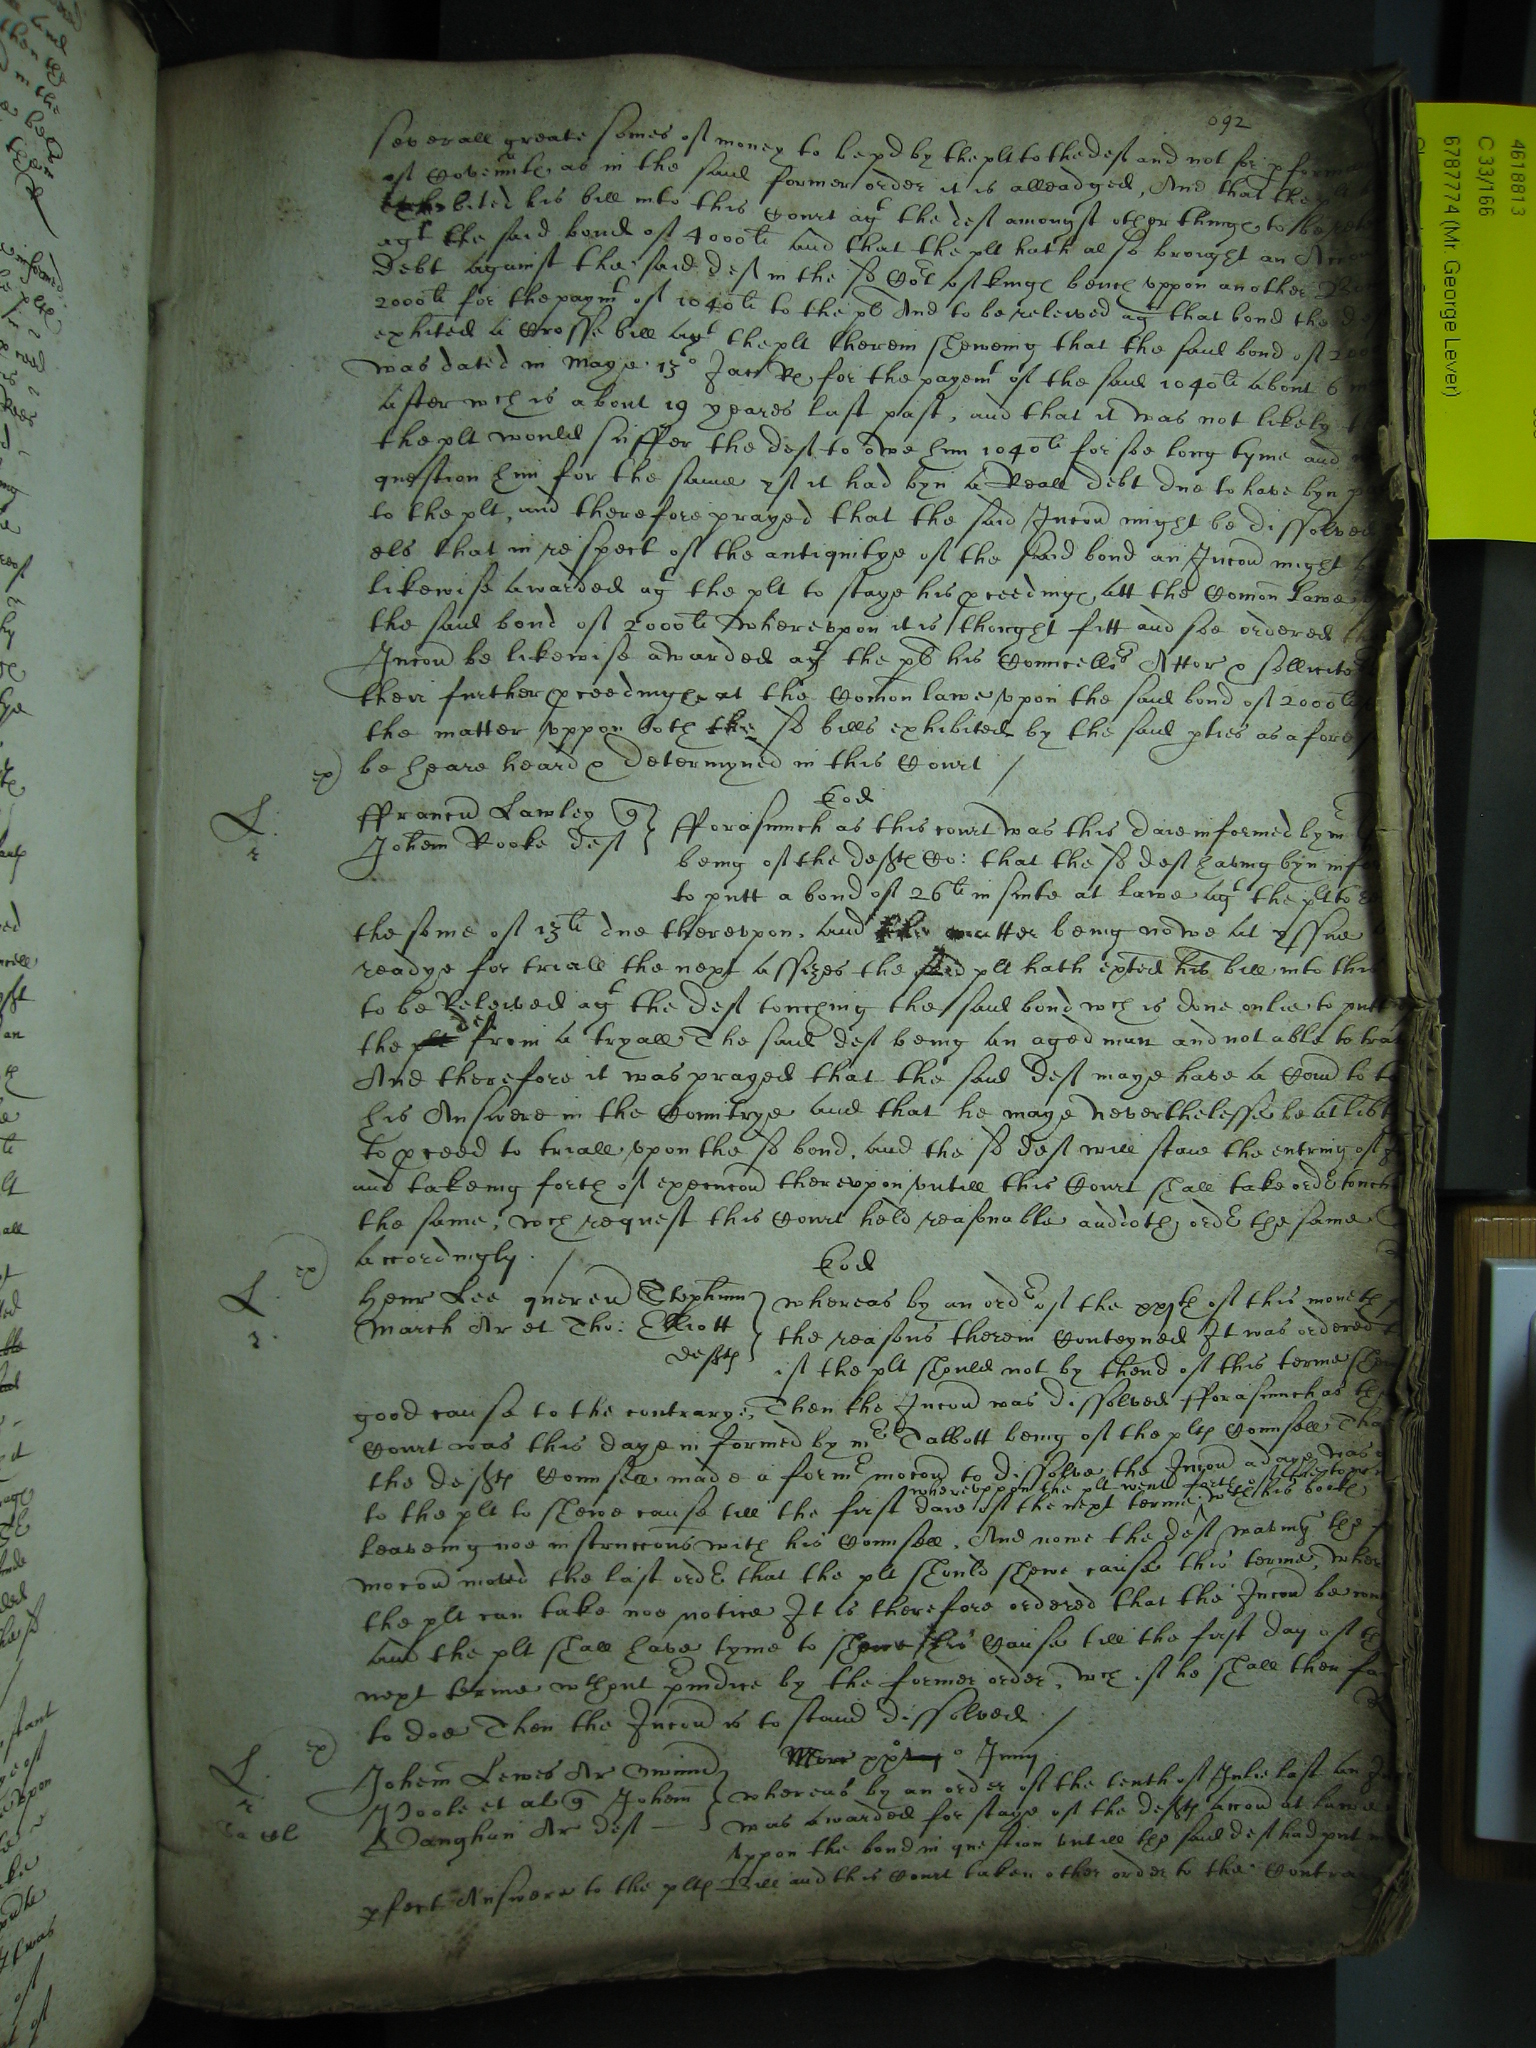 092
severall greate somes of money to be pd by the plt to the deft and not for pforma
of Covennts as in the said former order it is alleadged, And that the plt
exhibited his bill into this Court agt the deft amongst other things to be rele
agt the said bond of 4000li and that the plt hath also brought an Accon
debt against the said deft in the sd Cort of kings bench uppon another Bon
2000li for the paymt of 1040li to the pl And to be releived agt that bond the de
exhited a Crosse bill agt the plt therein sheweing that the said bond of 2000
was dated in Maye 13o Jac R for the payemt of the said 1040li about 6 m
after wch is about 19 yeares last past, and that it was not likely t
the plt would suffer the deft to owe him 1040li for soe long tyme and
question him for the same yf it had byn a Reall debt due to have byn p
to the plt, and therefore prayed that the said Incon might be dissolved
els that in respect of the antiquitye of the said bond an Incon might b
likewise awarded agt the plt to staye his pceedings att the Comon Lawe
the said bond of 2000li Whereupon it is thought fitt and soe ordered th
Incon be likewise awarded agt the pl his Councellrs Attor & sollicito
their further pceedings at the Comon lawe upon the said bond of 2000li
the matter uppon both the sd bills exhibited by the said pties as afore
be heare heard & determyned in this Court /
ex)
L.
r
Eod
ffrancu Lawley q
Johem Rooke deft
fforasmuch as this court was this daie informed by mr
being of the defts Co: that the sd deft having byn infor
to putt a bond of 26li in suite at lawe agt the plt to
the some of 13li due thereupon, and the matter being nowe at yssue
readye for triall the next assizes the said plt hath exted his bill into this
to be Releived agt the deft touching the said bond wch is done onlie to putt
the plt deft from a tryall The said deft being an aged man and not able to tra
And therefore it was prayed that the said deft maye have a Comn to ta
his Answere in the Countrye and that he maye neverthelesse be at lib
to pceed to triall upon the sd bond, and the sd deft will staie the entring of
and takeing forth of execucon thereupon untill this Court shall take order touch
the same, wch request this Court held reasonable and doth order the same
accordingly. /
ex)
L.
r.
Eod
Henr Lee queren Stephum
March Ar et Tho: Elliott
defts
whereas by an order of the xxjth of this moneth
the reasons therein Conteyned It was ordered t
if the plt should not by thend of this terme shew
good cause to the contrarye, Then the Incon was dissolved fforasmuch as th
Court was this daye informed by mr Talbott being of the plts Counsell Tha
the defts Counsell made a formr mocon to dissolve the Incon a daye was
whereuppon the plt went forth of the towne
to the plt to shewe cause till the first daie of the next terme, wth his booke
leaveing noe instruccons with his Counsell, And nowe the deft waiving the
mocon moved the last order that the plt should shewe cause this terme, wher
the plt can take noe notice It is therefore ordered that the Incon be con
and the plt shall have tyme to shewe his Cause till the first day of th
next terme wthout prudice by the former order, wch if he shall then fa
to doe Then the Incon is to stand dissolved. /
ex)
L.
r
Johem Lewes Ar
Poole et al q Johem
Vaughan Ar deft
Merc xxo Junij
whereas by an order of the tenth of Julie last an In
was awarded for staye of the defts accon at lawe
uppon the bond in question untill the said deft had put in
pfect Answere to the plts Bill and this Court taken other order to the Contra
4618813
C 33/166
6787774 (Mr. George Lever)